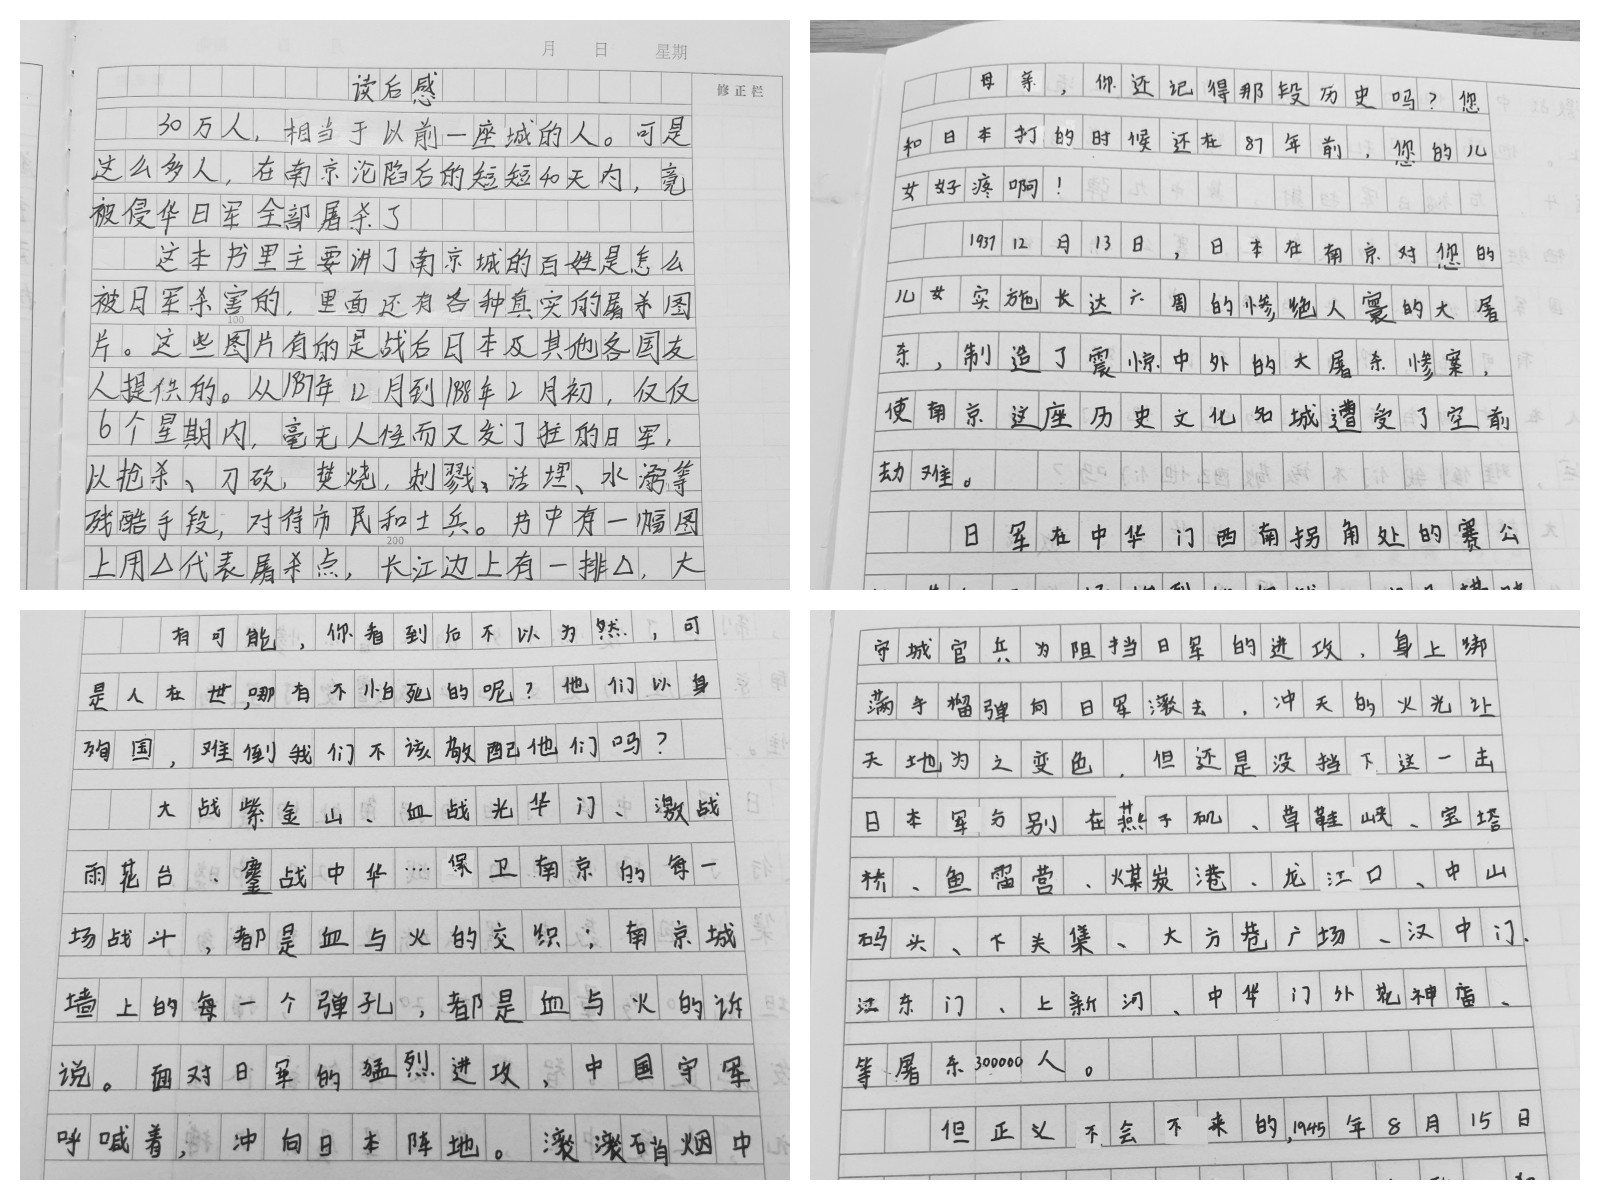 月 日 星期
修正栏
读后感
30万人，相当于以前一座城的人。可是
这么多人，在南京沦陷后的短短40天内，竟
被侵华日军全部屠杀了
这本书里主要讲了南京城的百姓是怎么
被日军杀害的，里面还有各种真实的屠杀图
100
片。这些图片有的是战后日本及其他各国友
人提供的。从1937年12月到1938年2月初，仅仅
6个星期内，毫无人性而又发了狂的日军，
以抢杀、刀砍，焚烧，刺戮、活埋、水溺等
残酷手段，对待市民和士兵。书中有一幅图
200
上用△代表屠杀点，长江边上有一排△，大
母亲，你还记得那段历史吗？您
和日本打的时候还在87年前，您的儿
女好疼啊！
1937 12月13日，日本在南京对您的
儿女实施长达六周的惨绝人寰的大屠
杀，制造了震惊中外的大屠杀惨案，
使南京这座历史文化名城遭受了空前
劫难。
日军在中华门西南拐角处的赛公
有可能，你看到后不以为然，可
是人在世，哪有不怕死的呢？他们以身
殉国，难倒我们不该敬配他们吗？
大战紫金山、血战光华门、激战
雨花台、鏖战中华····保卫南京的每一
场战斗，都是血与火的交织；南京城
墙上的每一个弹孔，都是血与火的诉
说。面对日军的猛烈进攻，中国守军
呼喊着，冲向日本阵地。滚滚硝烟中
守城官兵为阻挡日军的进攻，身上绑
满手榴弹向日军滚去，冲天的火光让
天地为之变色，但还是没挡下这一击
日本军分别在燕子矶、草鞋峡、宝塔
桥、鱼雷营、煤炭港、龙江口、中山
码头、下关集、大方巷广场、汉中门、
江东门、上新河、中华门外花神庙、
等屠杀300000人。
但正义不会不来的，1945年8月15日